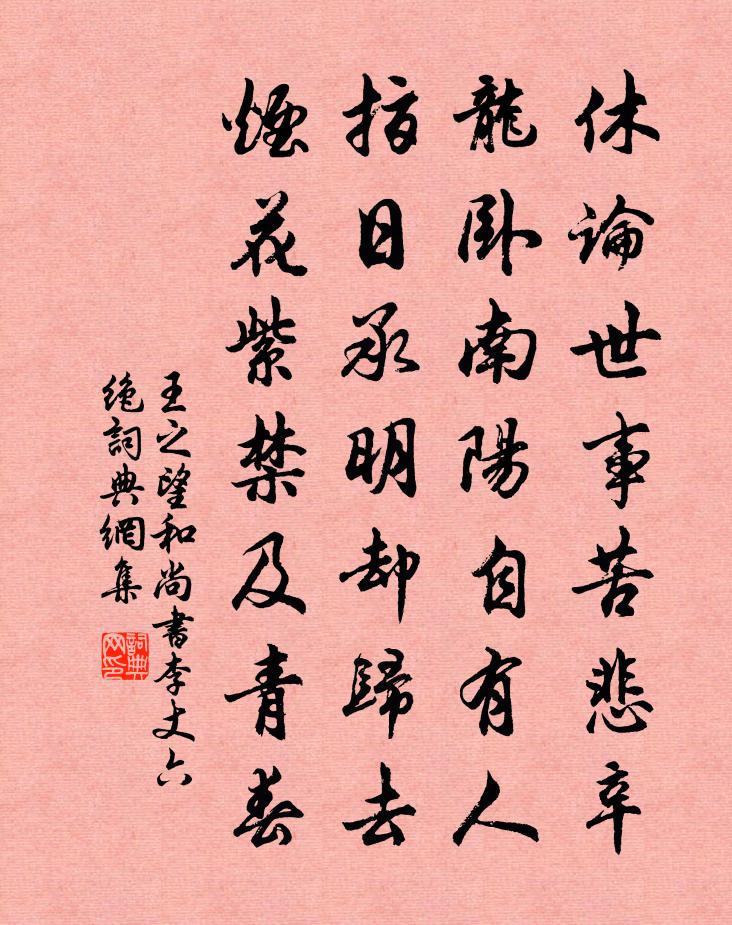 休論世事苦悲辛
龍臥南陽自有人
指日承明却歸去
煙花紫禁及青春
王之望和尚書李丈六
絶詞典網集
詞典網印